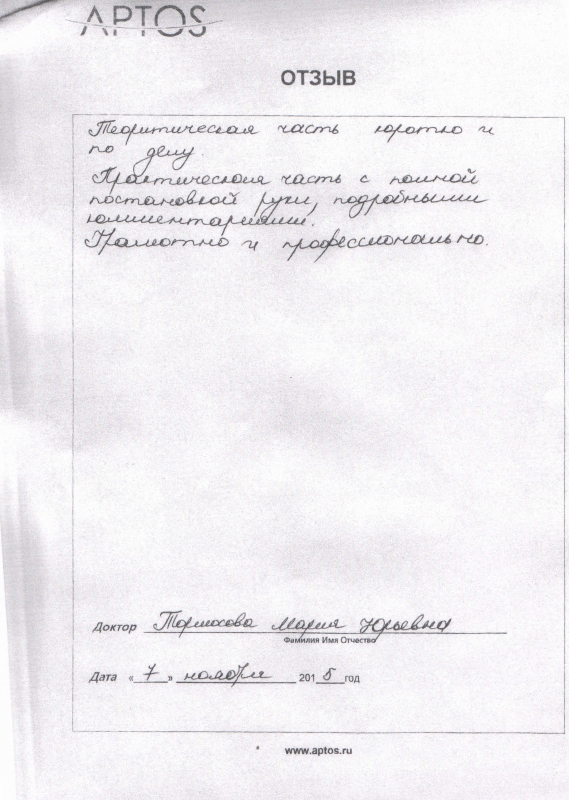 APTOS
ОТЗЫВ
Теоритическая часть коротко и
по делу.
Практическая часть с полной
постановкой руки, подробными
комментариями.
Грамотно и профессионально.
Доктор Тормосова Мария Юрьевна
Фамилия Имя Отчество
Дата «7» ноября 2015 год
www.aptos.ru